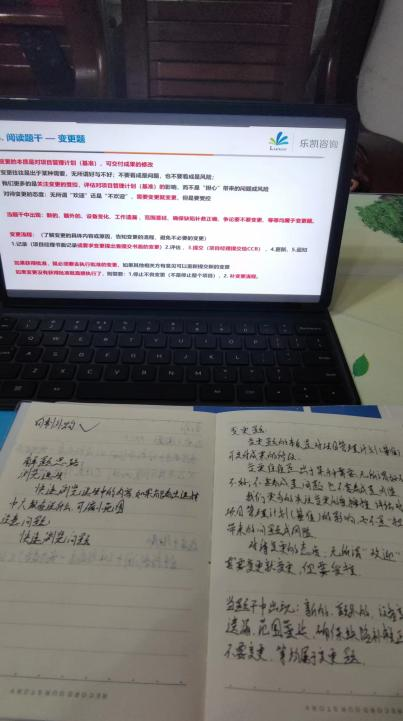 阅读题干 — 变更题
乐凯咨询
变更的本质是对项目管理计划（基准）、可交付成果的修改
变更往往是出于某种需要，无所谓好与不好；不要看成是问题，也不要看成是风险；
我们更多的是关注变更的管控，评估对项目管理计划（基准）的影响，而不是“担心”带来的问题或风险
对待变更的态度：无所谓“欢迎”还是“不欢迎”，需要变更就变更，但是要受控
当题干中出现：新的、额外的、设备变化、工作遗漏、范围蔓延、确保缺陷补救正确、争论要不要变更，等等均属于变更题。
变更流程：（了解变更的具体内容或原因，告知变更的流程，避免不必要的变更）
1.记录（项目经理书面记录或要求变更提出者提交书面的变更）2.评估，3.提交（项目经理提交给CCB），4.更新，5.通知
如果获得批准，就必须要去执行批准的变更，如果其他相关方有意见可以重新提交新的变更
如果变更没有获得批准就直接执行了，则需要：1.停止不良变更（不是停止整个项目），2. 补变更流程。
解题思路
浏览选项
快速浏览选项中的内容
可缩小范围
注意问题
快速浏览问题
变更题：
变更题的本质是对项目管理计划（基准）
可交付成果的修改。
变更往往是出于某种需要，无所谓好
不好，不要看成是问题，也不要看成是风险
我们更多的关注变更的管控，评估
项目管理计划（基准）的影响，而不是“担
带来的问题或风险
对待变更的态度，无所谓“欢迎”
需要变更就变更，但要受控
当题干中出现：新的，额外的，设备变
遗漏，范围蔓延，确保缺陷补救正
不要变更，等均属于变更题。
RECORD OUR STORY